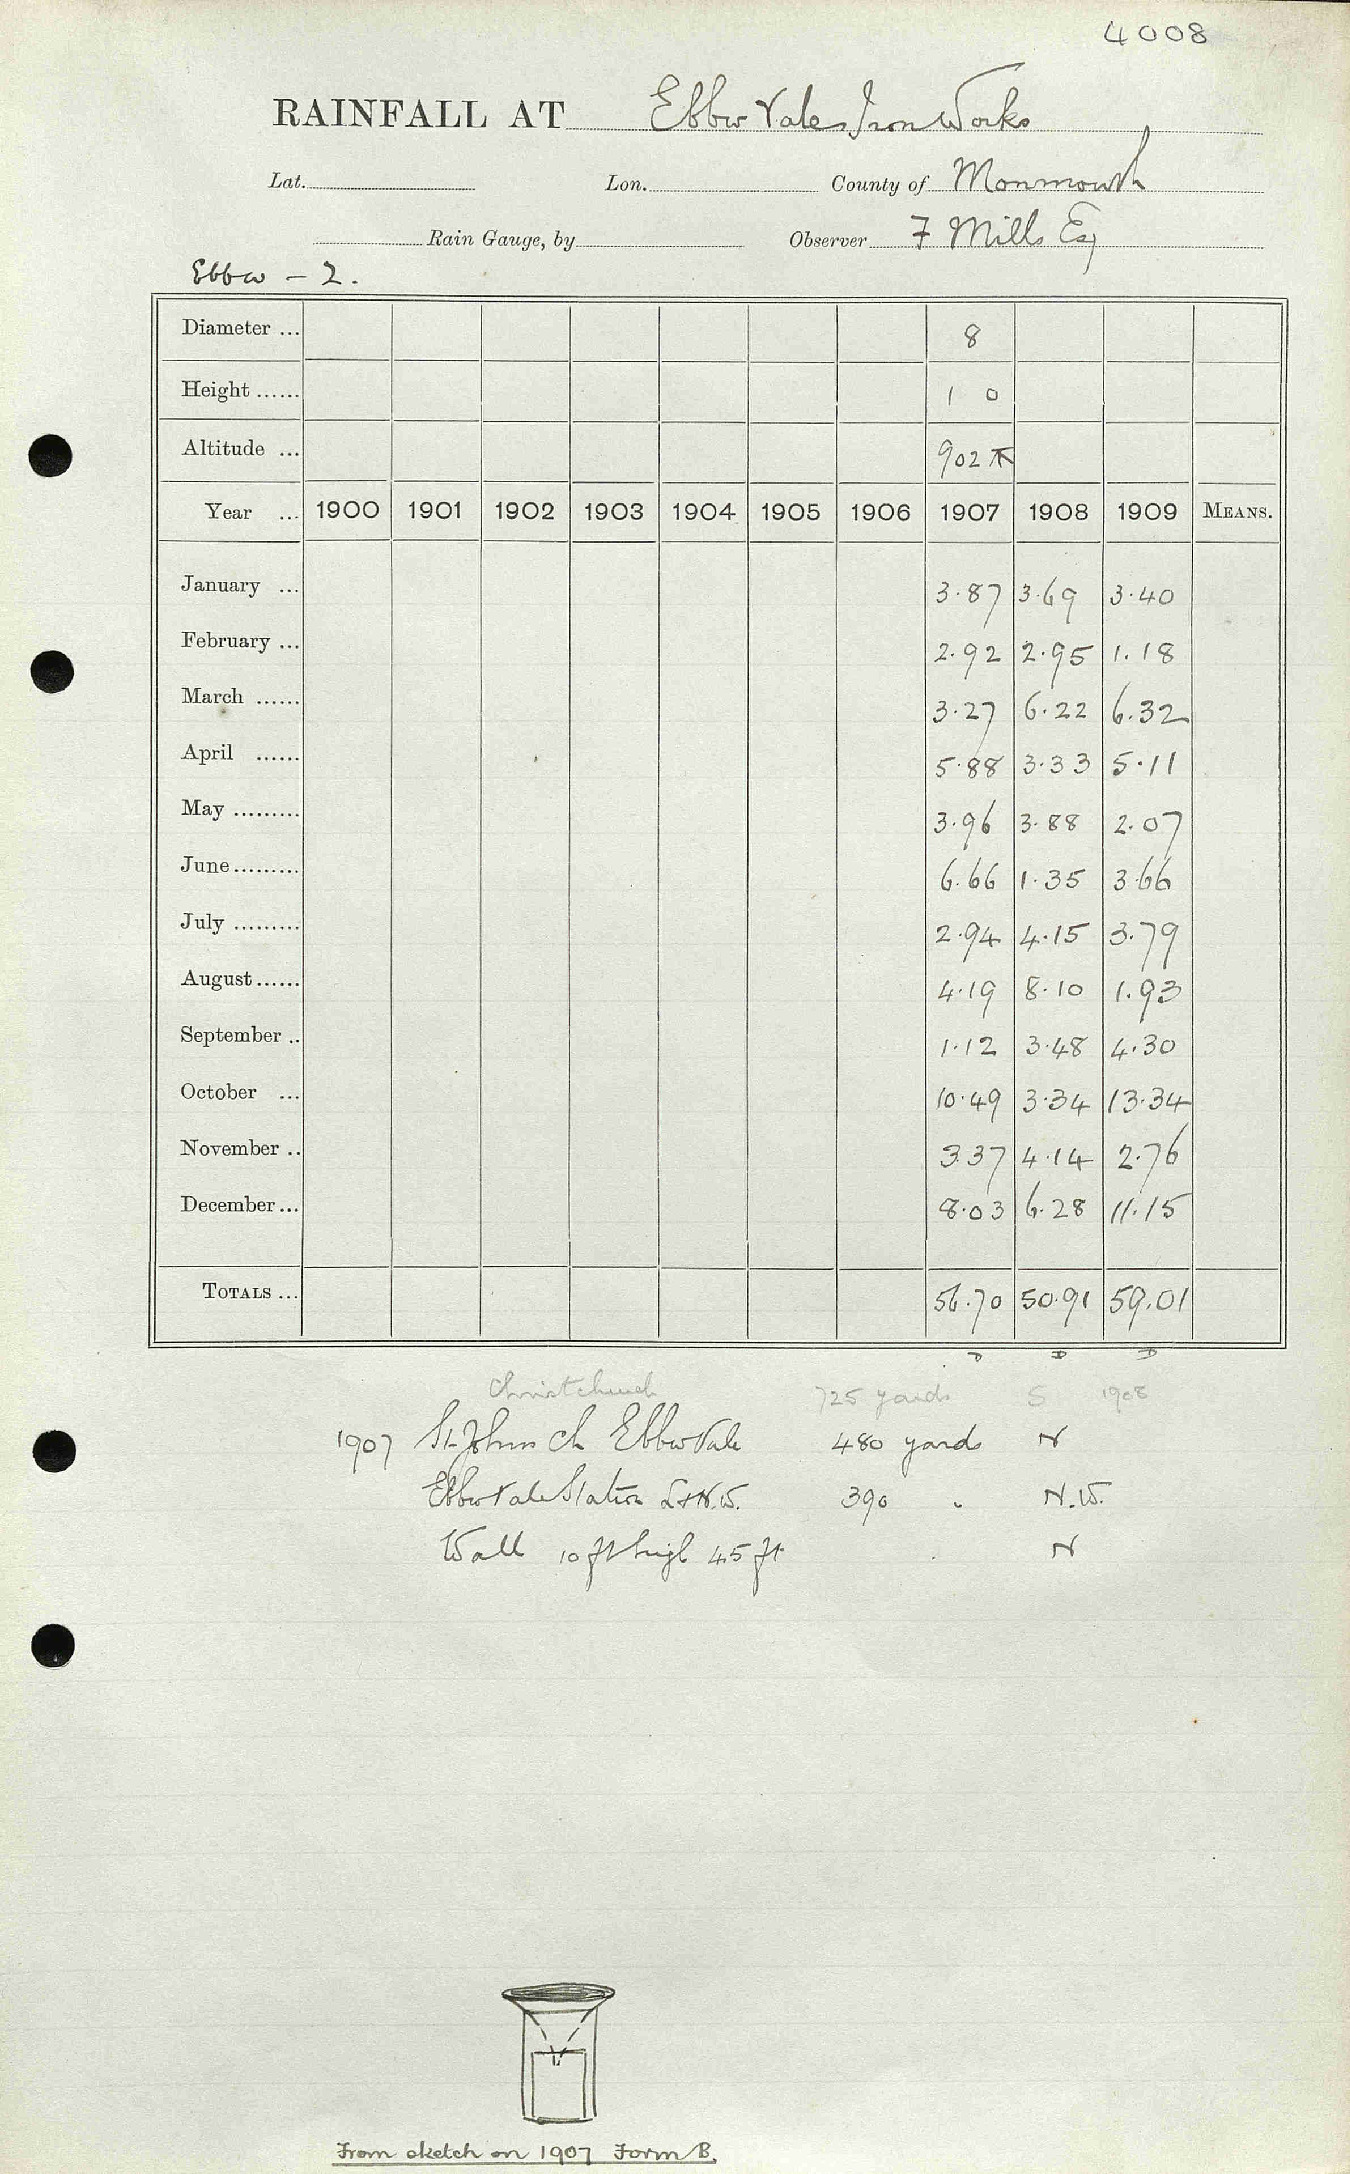 4008
RAINFALL AT Ebbw Vale Iron Works
Lat. Lon. County of Monmouth
Rain Gauge, by Observer F Mills Esq
Ebbw - 2.
Diameter ... 8
Height ...... 1 0
Altitude ... 902
Year ... 1900 1901 1902 1903 1904 1905 1906 1907 1908 1909 MEANS.
January ... 3.87 3.69 3.40
February ... 2.92 2.95 1.18
March ...... 3.27 6.22 6.32
April ...... 5.88 3.33 5.11
May ......... 3.96 3.88 2.07
June ......... 6.66 1.35 3.66
July ......... 2.94 4.15 3.79
August ...... 4.19 8.10 1.93
September .. 1.12 3.48 4.30
October ... 10.49 3.34 13.34
November .. 3.37 4.14 2.76
December ... 8.03 6.28 11.15
TOTALS ... 56.70 50.91 59.01
D D D
Christchurch 725 yards S 1908
1907 St Johns Ch Ebbw Vale 480 yards N
Ebbw Vale Station L&N.W. 390 " N.W.
Wall 10 ft high 45 ft N
From sketch on 1907 Form B.